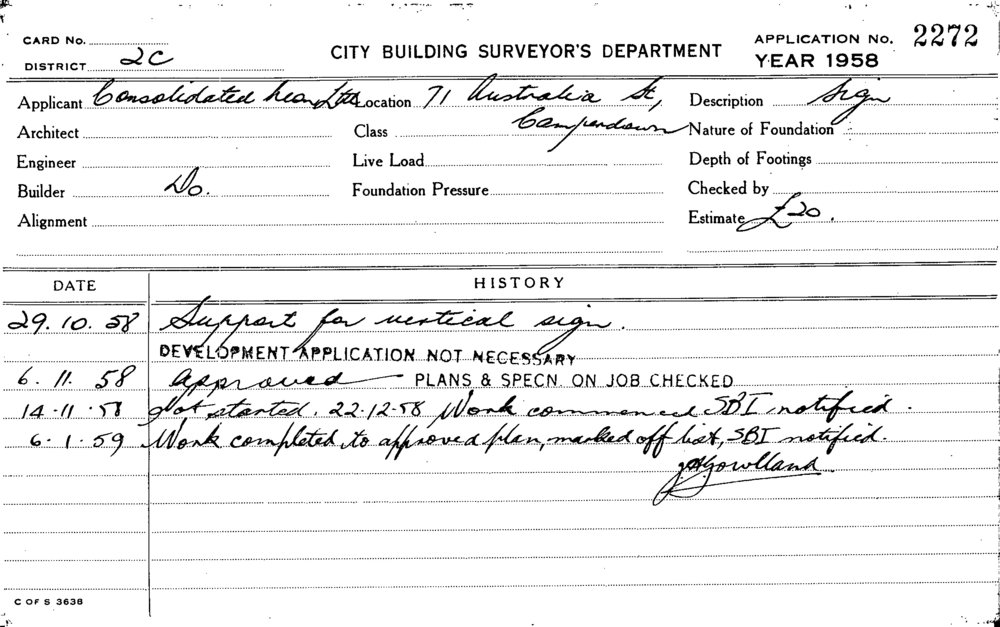 CARD No.
DISTRICT 2C
CITY BUILDING SURVEYOR'S DEPARTMENT
APPLICATION No. 2272
YEAR 1958
Applicant Consolidated Neon Ltd Location 71 Australia St, Description Sign
Architect Class Camperdown Nature of Foundation
Engineer Live Load Depth of Footings
Builder Do. Foundation Pressure Checked by
Alignment Estimate £20.
DATE HISTORY
29.10.58 Support for vertical sign.
DEVELOPMENT APPLICATION NOT NECESSARY
6.11.58 Approved PLANS & SPECN ON JOB CHECKED
14.11.58 Not started. 22-12-58 Work commenced SBI notified.
6.1.59 Work completed to approved plan, marked off list, SBI notified.
Gowlland
C OF S 3638